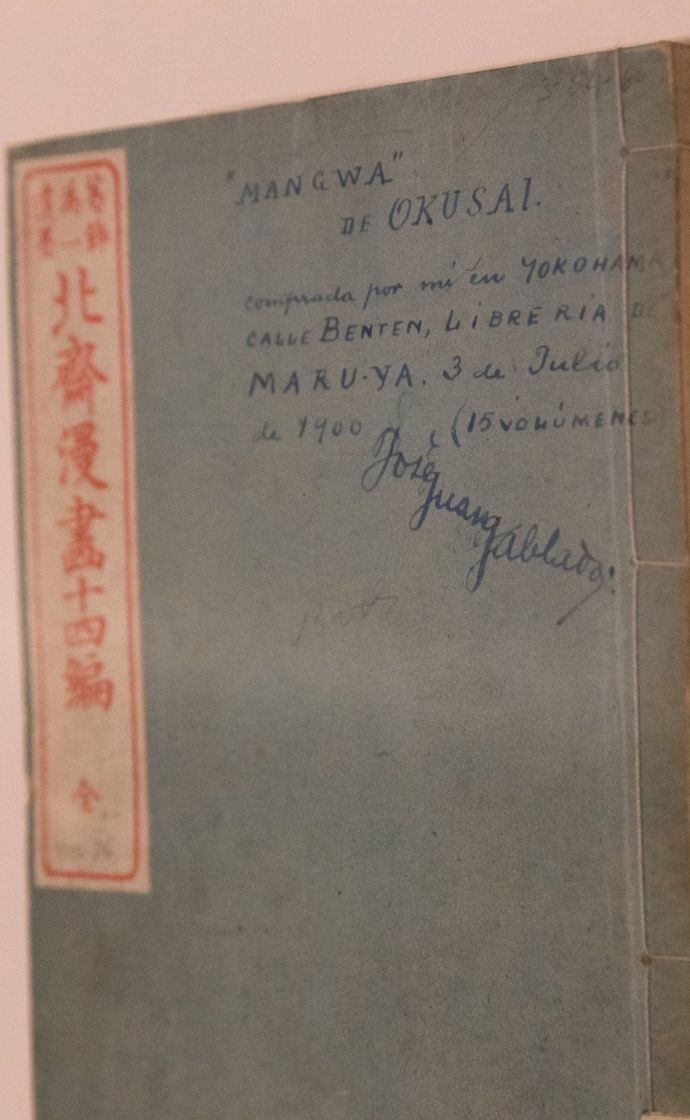 "MANGWA"
DE OKUSAI.
comprada por mi en YOKOHAMA,
CALLE BENTEN, LIBRERIA DE
MARU-YA. 3 de Julio
de 1900 (15 VOLÚMENES)
José Juan Tablada.
葛飾
為一
畫
北齋漫畫十四編
全